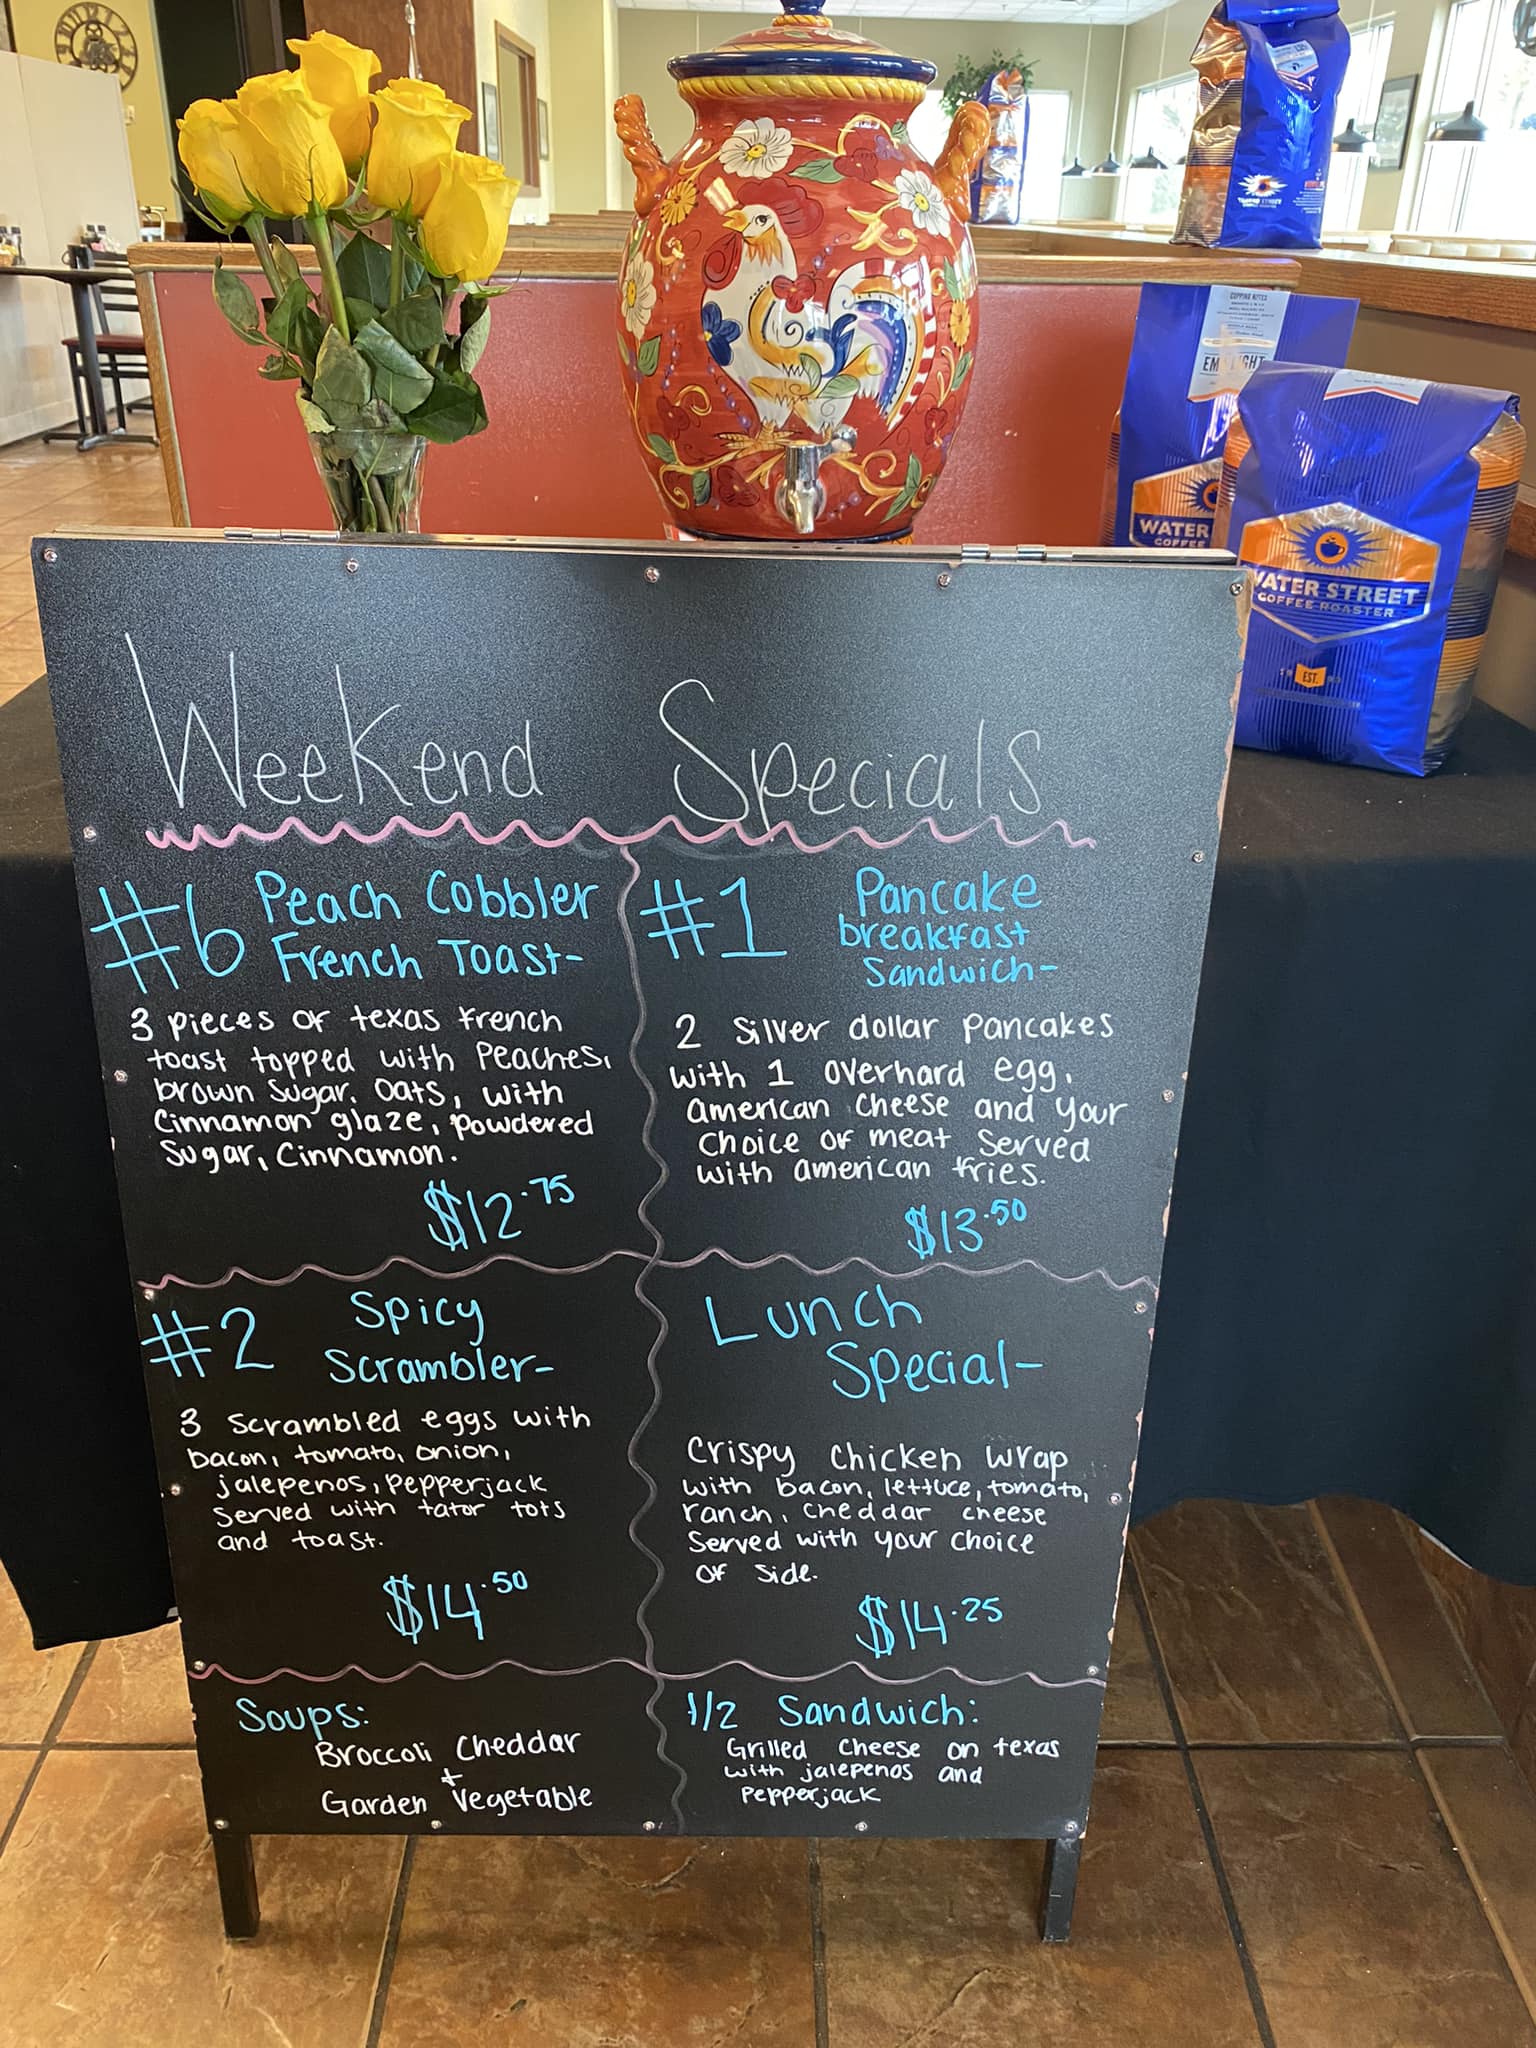 CUPPING NOTES
WATER
COFFEE
WATER STREET
COFFEE ROASTER
EST.
Weekend Specials
#6 Peach Cobbler
French Toast-
3 pieces of texas french
toast topped with peaches,
brown sugar, oats, with
Cinnamon glaze, powdered
Sugar, Cinnamon.
$12.75
#1 Pancake
breakfast
Sandwich-
2 Silver dollar pancakes
with 1 overhard egg,
american cheese and your
choice of meat served
with american fries.
$13.50
#2 Spicy
Scrambler-
3 scrambled eggs with
bacon, tomato, onion,
jalepenos, pepperjack
served with tator tots
and toast.
$14.50
Lunch
Special-
Crispy chicken wrap
with bacon, lettuce, tomato,
ranch, cheddar cheese
Served with your choice
of side.
$14.25
Soups:
Broccoli Cheddar
+
Garden Vegetable
1/2 Sandwich:
Grilled cheese on texas
with jalepenos and
pepperjack